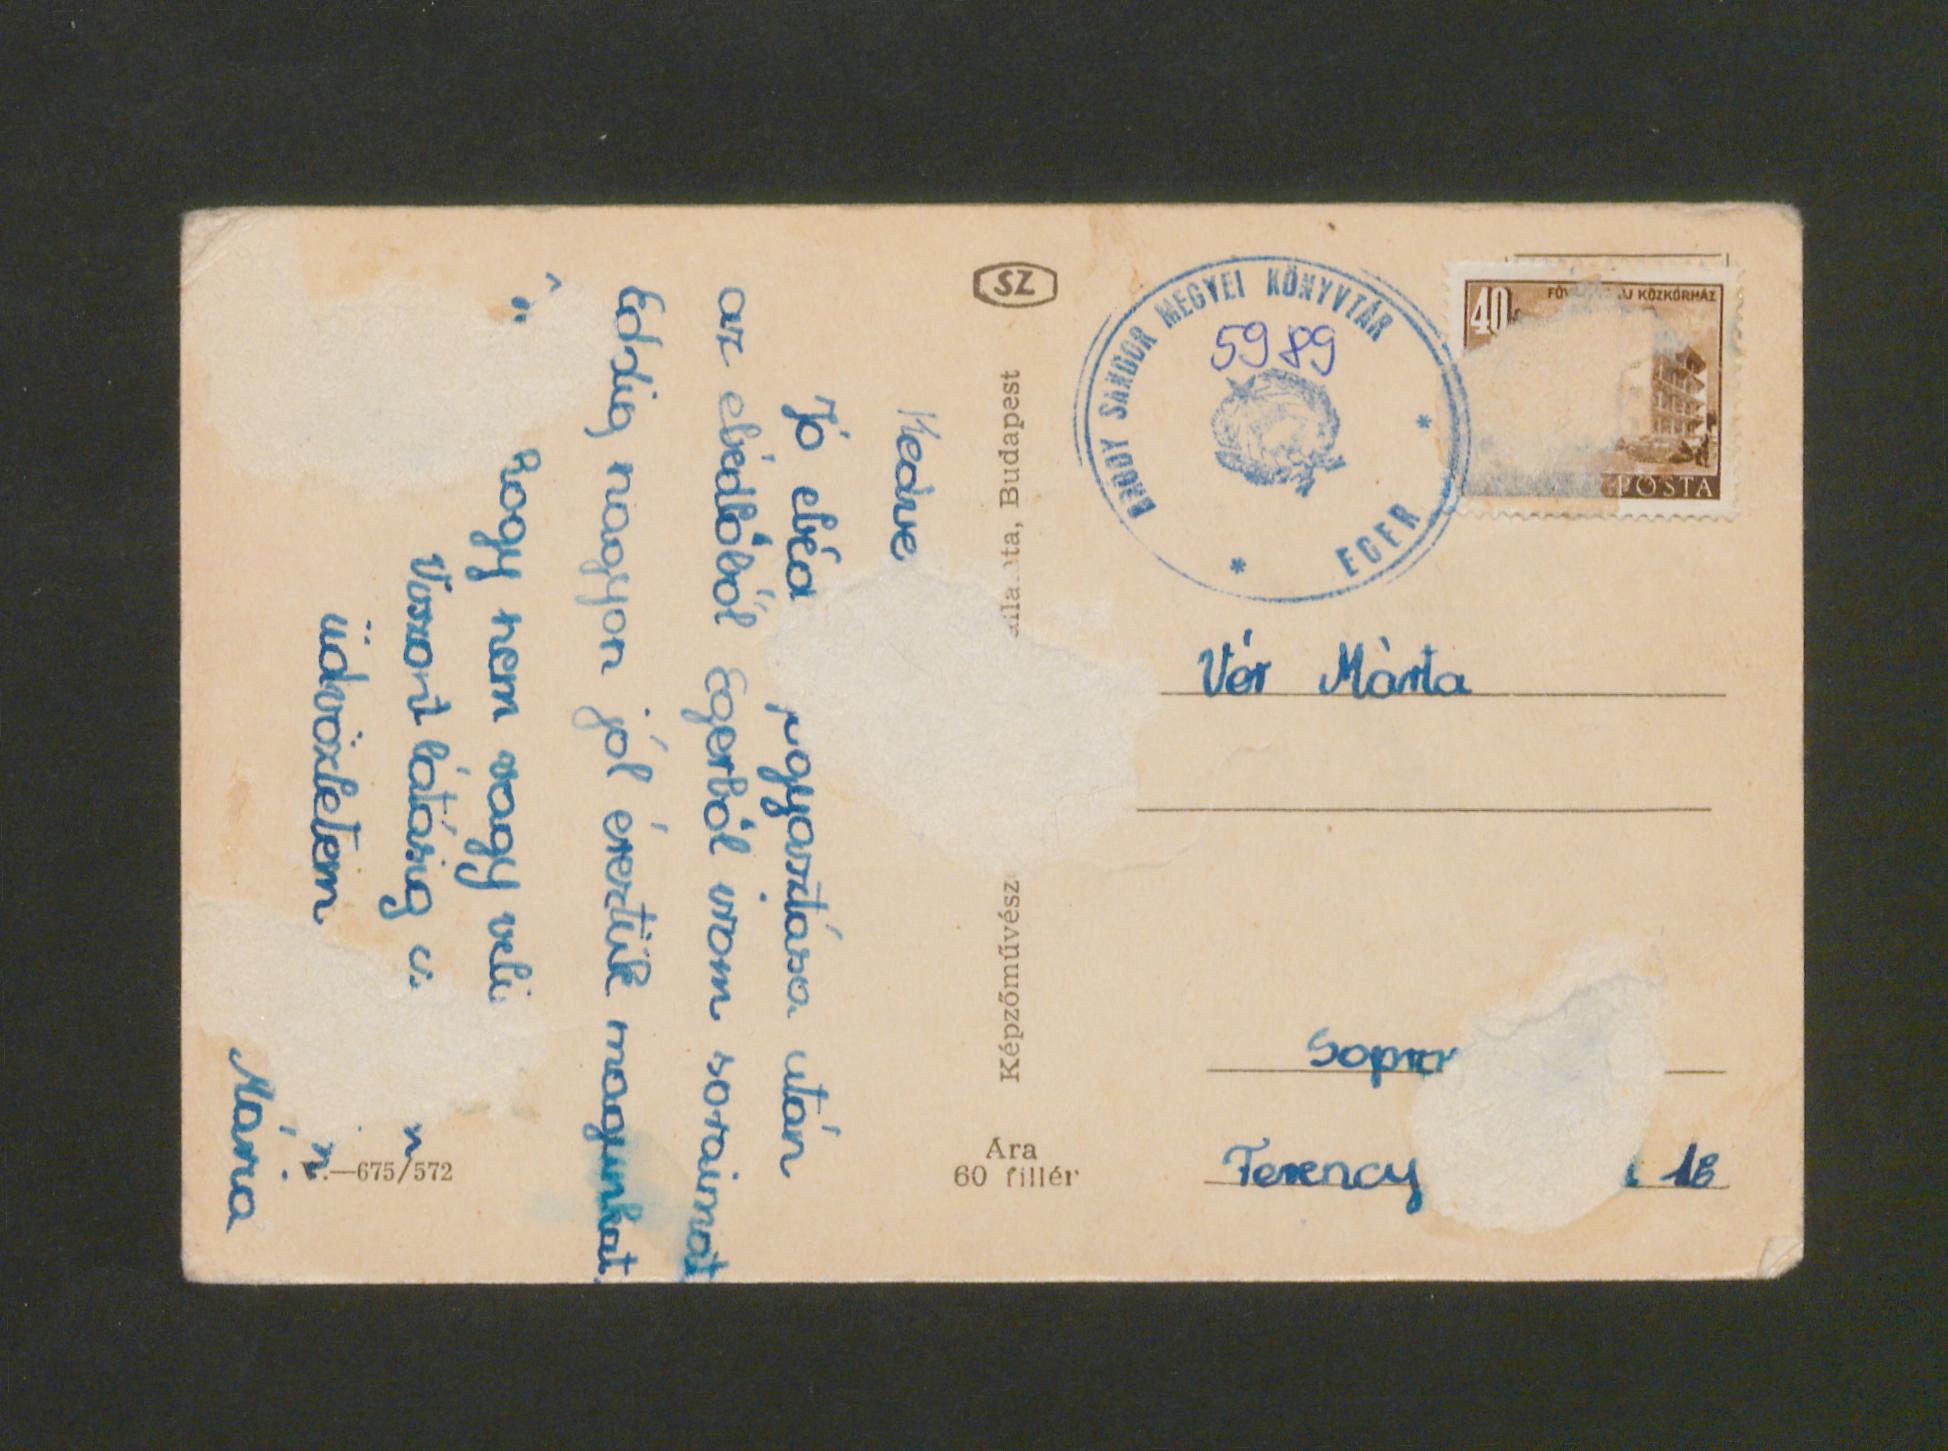 Kedve
Jó ebéd gyasztása után
az ebédlőből Egerből írom soraimat
Eddig nagyon jól éreztük magunkat.
hogy nem vagy veli
Viszontlátásig
üdvözletem
Mária
—675/572
SZ
Képzőművész ta, Budapest
Ára
60 fillér
BRÓDY SÁNDOR MEGYEI KÖNYVTÁR
5989
* EGER *
40
KÖZKÓRHÁZ
POSTA
Vér Márta
Sopron
Ferency 18